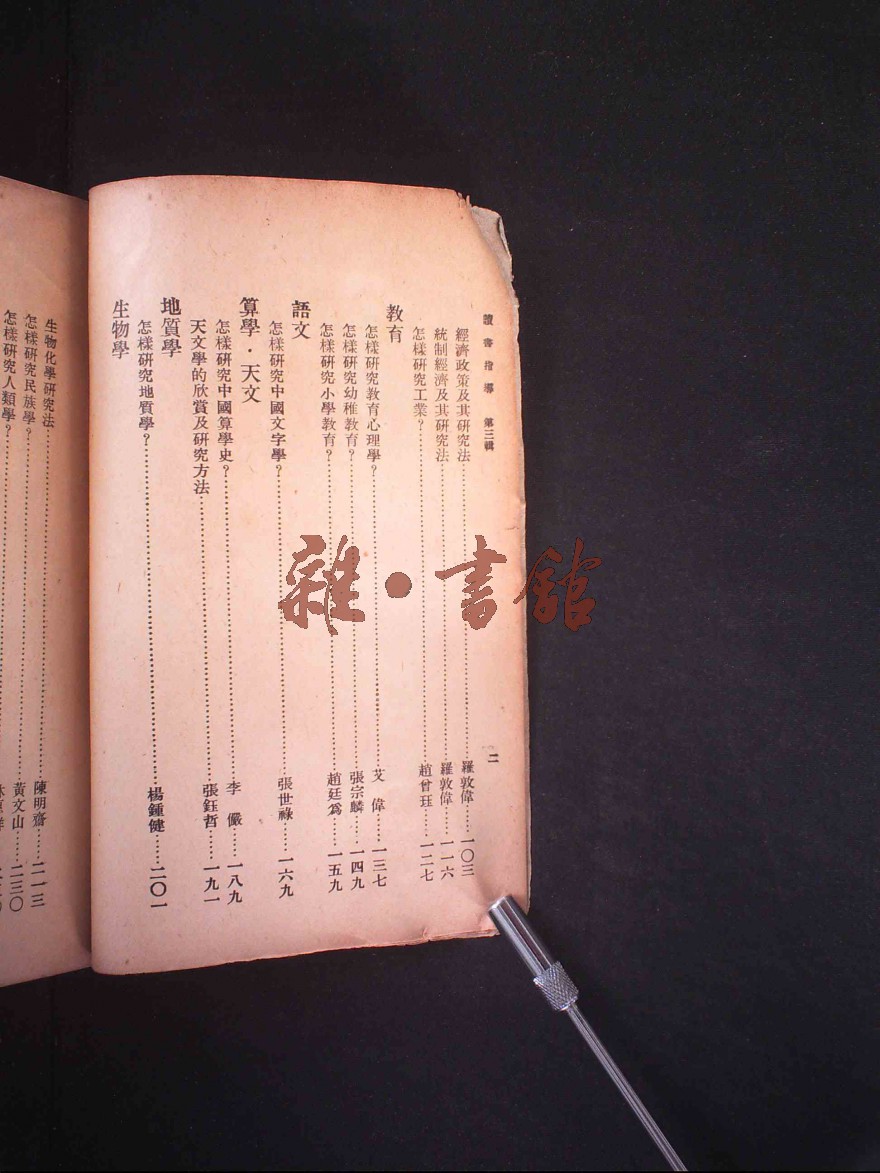 讀書指導 第三輯
二
經濟政策及其研究法……羅敦偉……一〇三
統制經濟及其研究法……羅敦偉……一一六
怎樣研究工業?……趙曾珏……一二七
教育
怎樣研究教育心理學?……艾 偉……一三七
怎樣研究幼稚教育?……張宗麟……一四九
怎樣研究小學教育?……趙廷爲……一五九
語文
怎樣研究中國文字學?……張世祿……一六九
算學・天文
怎樣研究中國算學史?……李 儼……一八九
天文學的欣賞及研究方法……張鈺哲……一九一
地質學
怎樣研究地質學?……楊鍾健……二〇一
生物學
生物化學研究法……陳明齋……二一三
怎樣研究民族學?……黃文山……二三〇
怎樣研究人類學?……
雜・書館